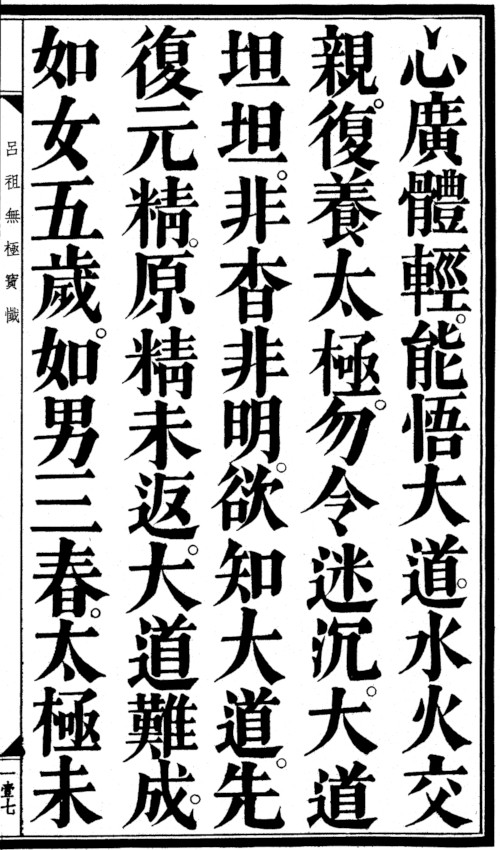 心廣體輕。能悟大道。水火交
親。復養太極。勿令迷沉。大道
坦坦。非杳非明。欲知大道。先
復元精。原精未返。大道難成。
如女五歲。如男三春。太極未
呂祖無極寶懺
一壹七